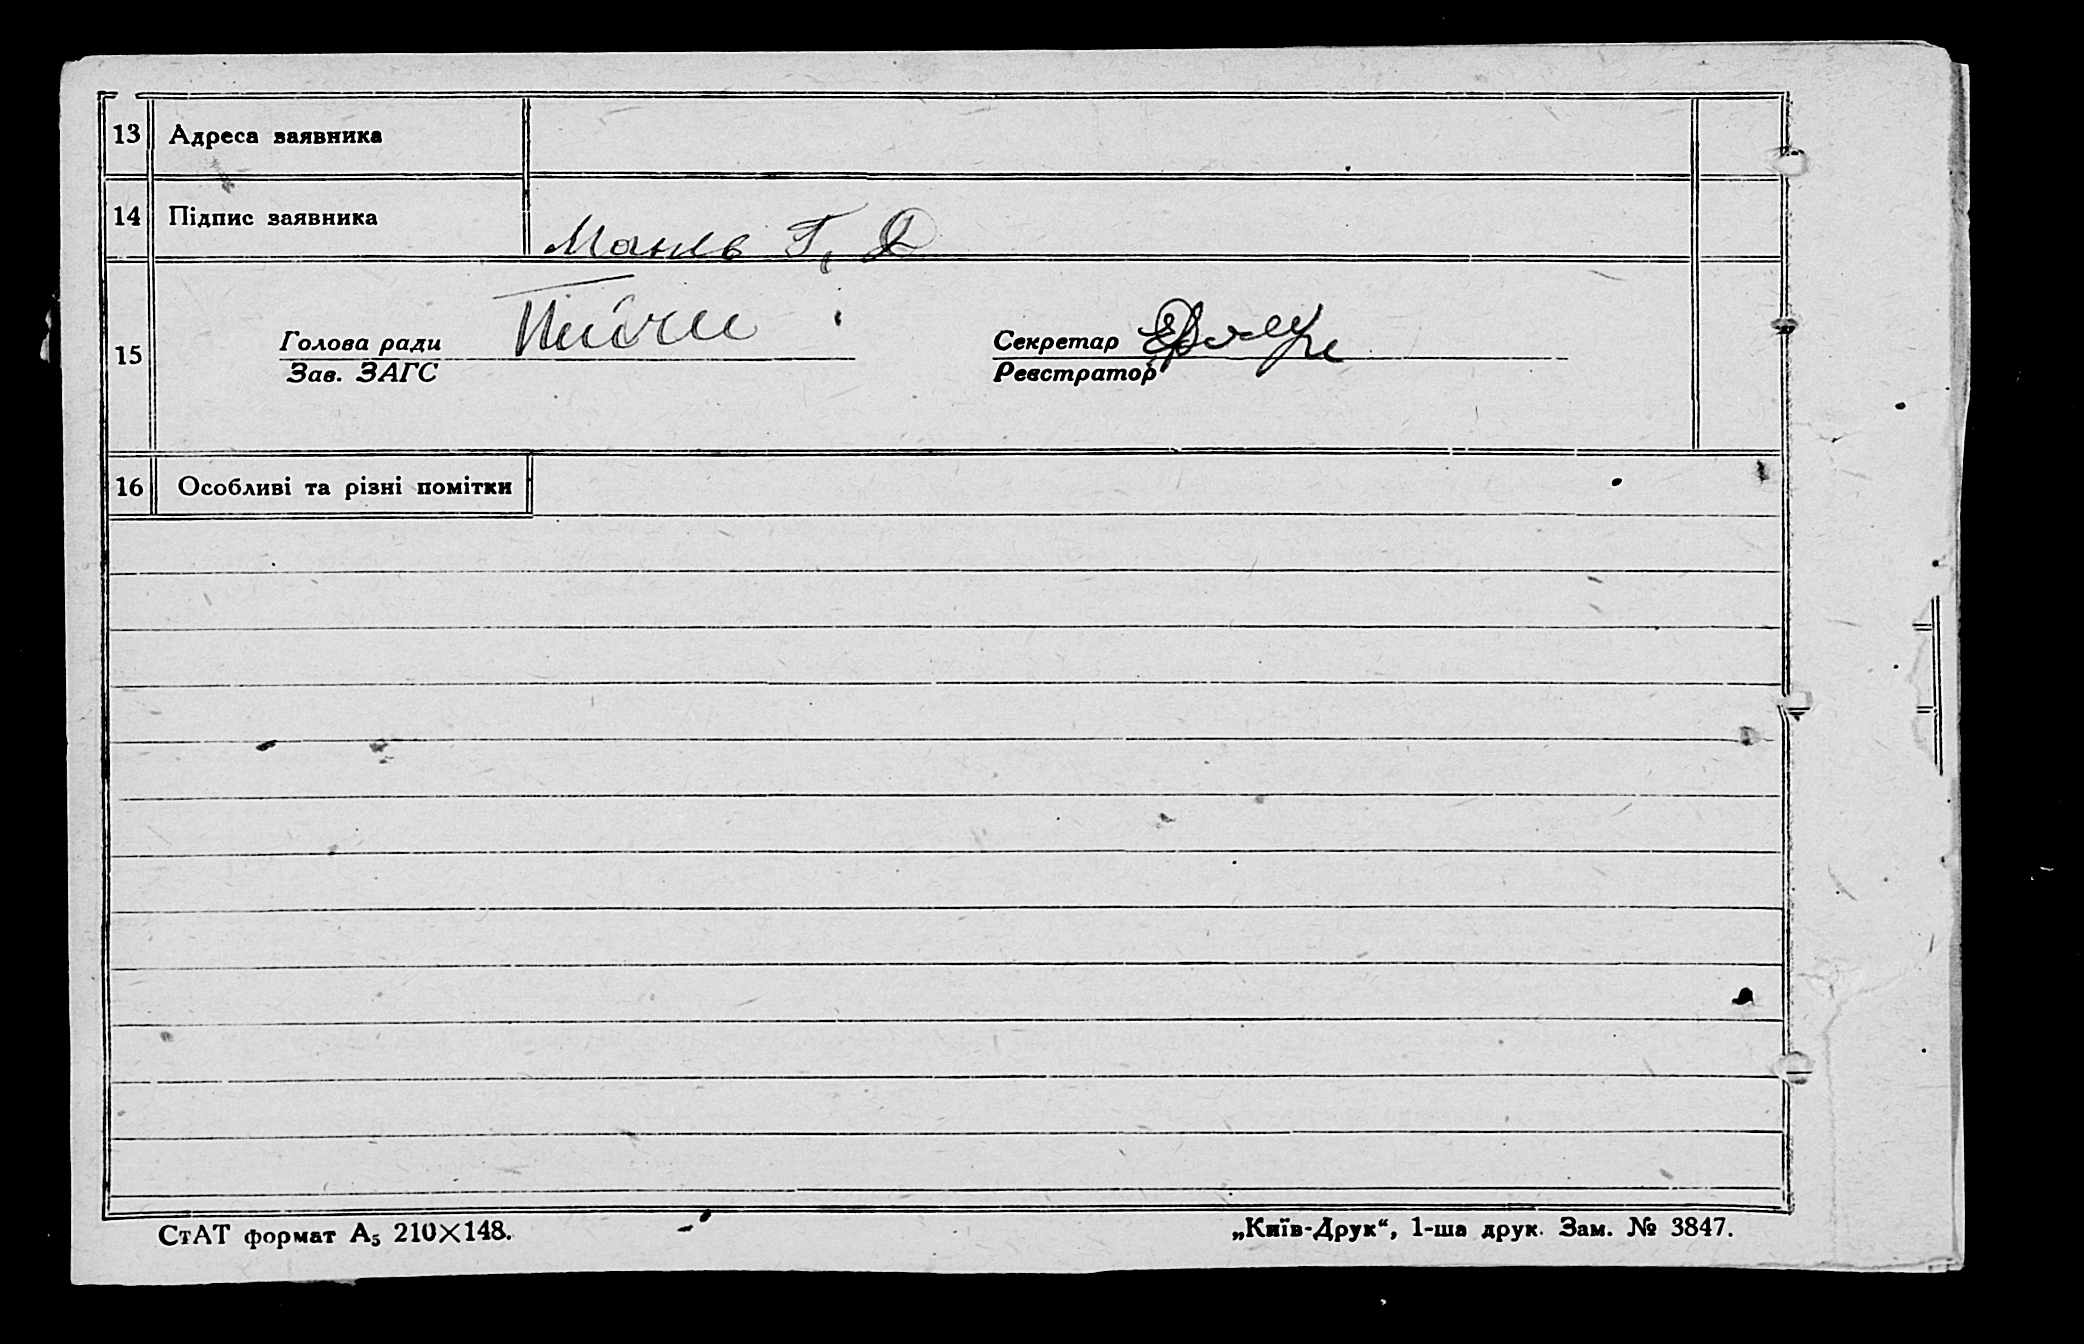 13 Адреса заявника
14 Підпис заявника
Г. Д
15
Голова ради
Секретар
Зав. ЗАГС
Реєстратор
16 Особливі та різні помітки
СтАТ формат А₅ 210×148.
„Київ-Друк“, 1-ша друк. Зам. № 3847.